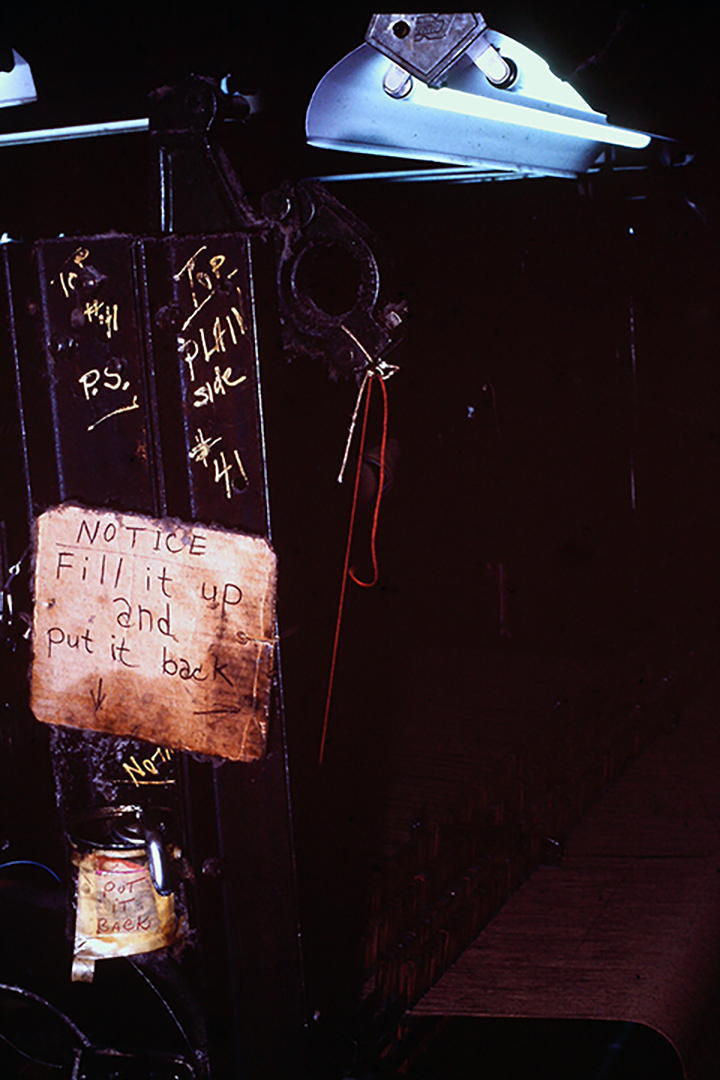 TOP
#41
P.S.
TOP
PLAIN
side
#
41
NOTICE
Fill it up
and
put it back
PUT
IT
BACK